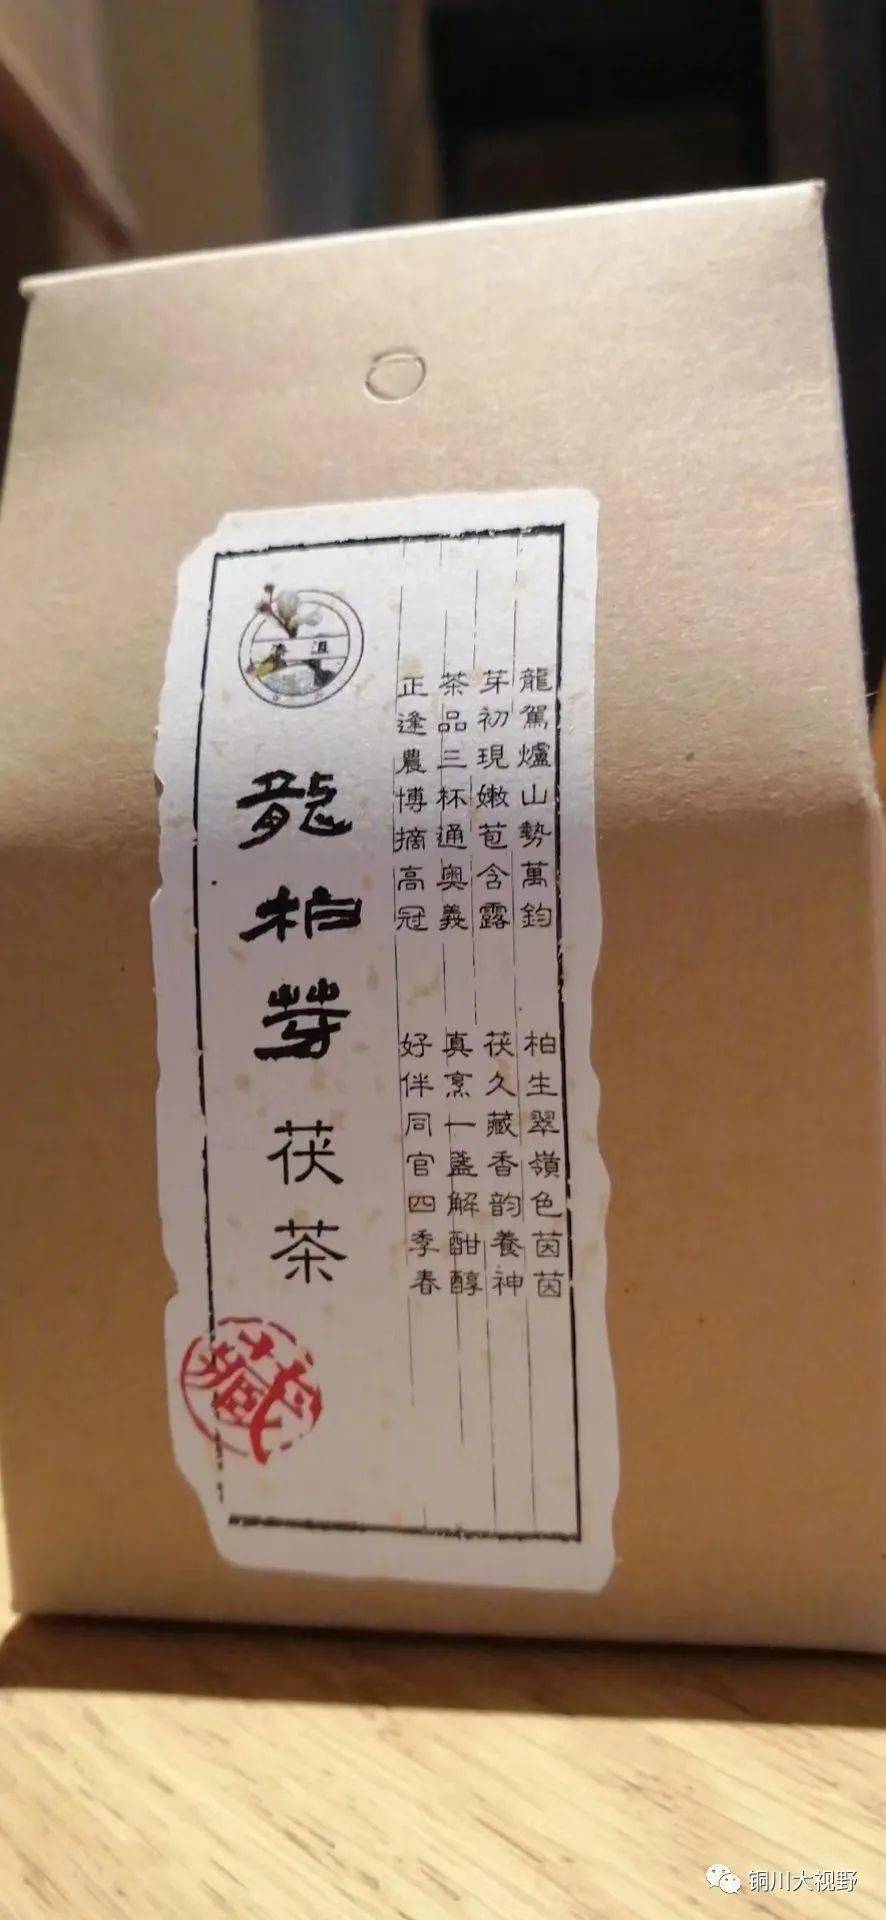 龍駕爐山勢萬鈞　柏生翠嶺色茵茵
芽初現嫩苞含露　茯久藏香韵養神
茶品三杯通奥義　真烹一盞解酣醇
正逢農博摘高冠　好伴同官四季春
龍柏芽茯茶
藏
铜川大视野